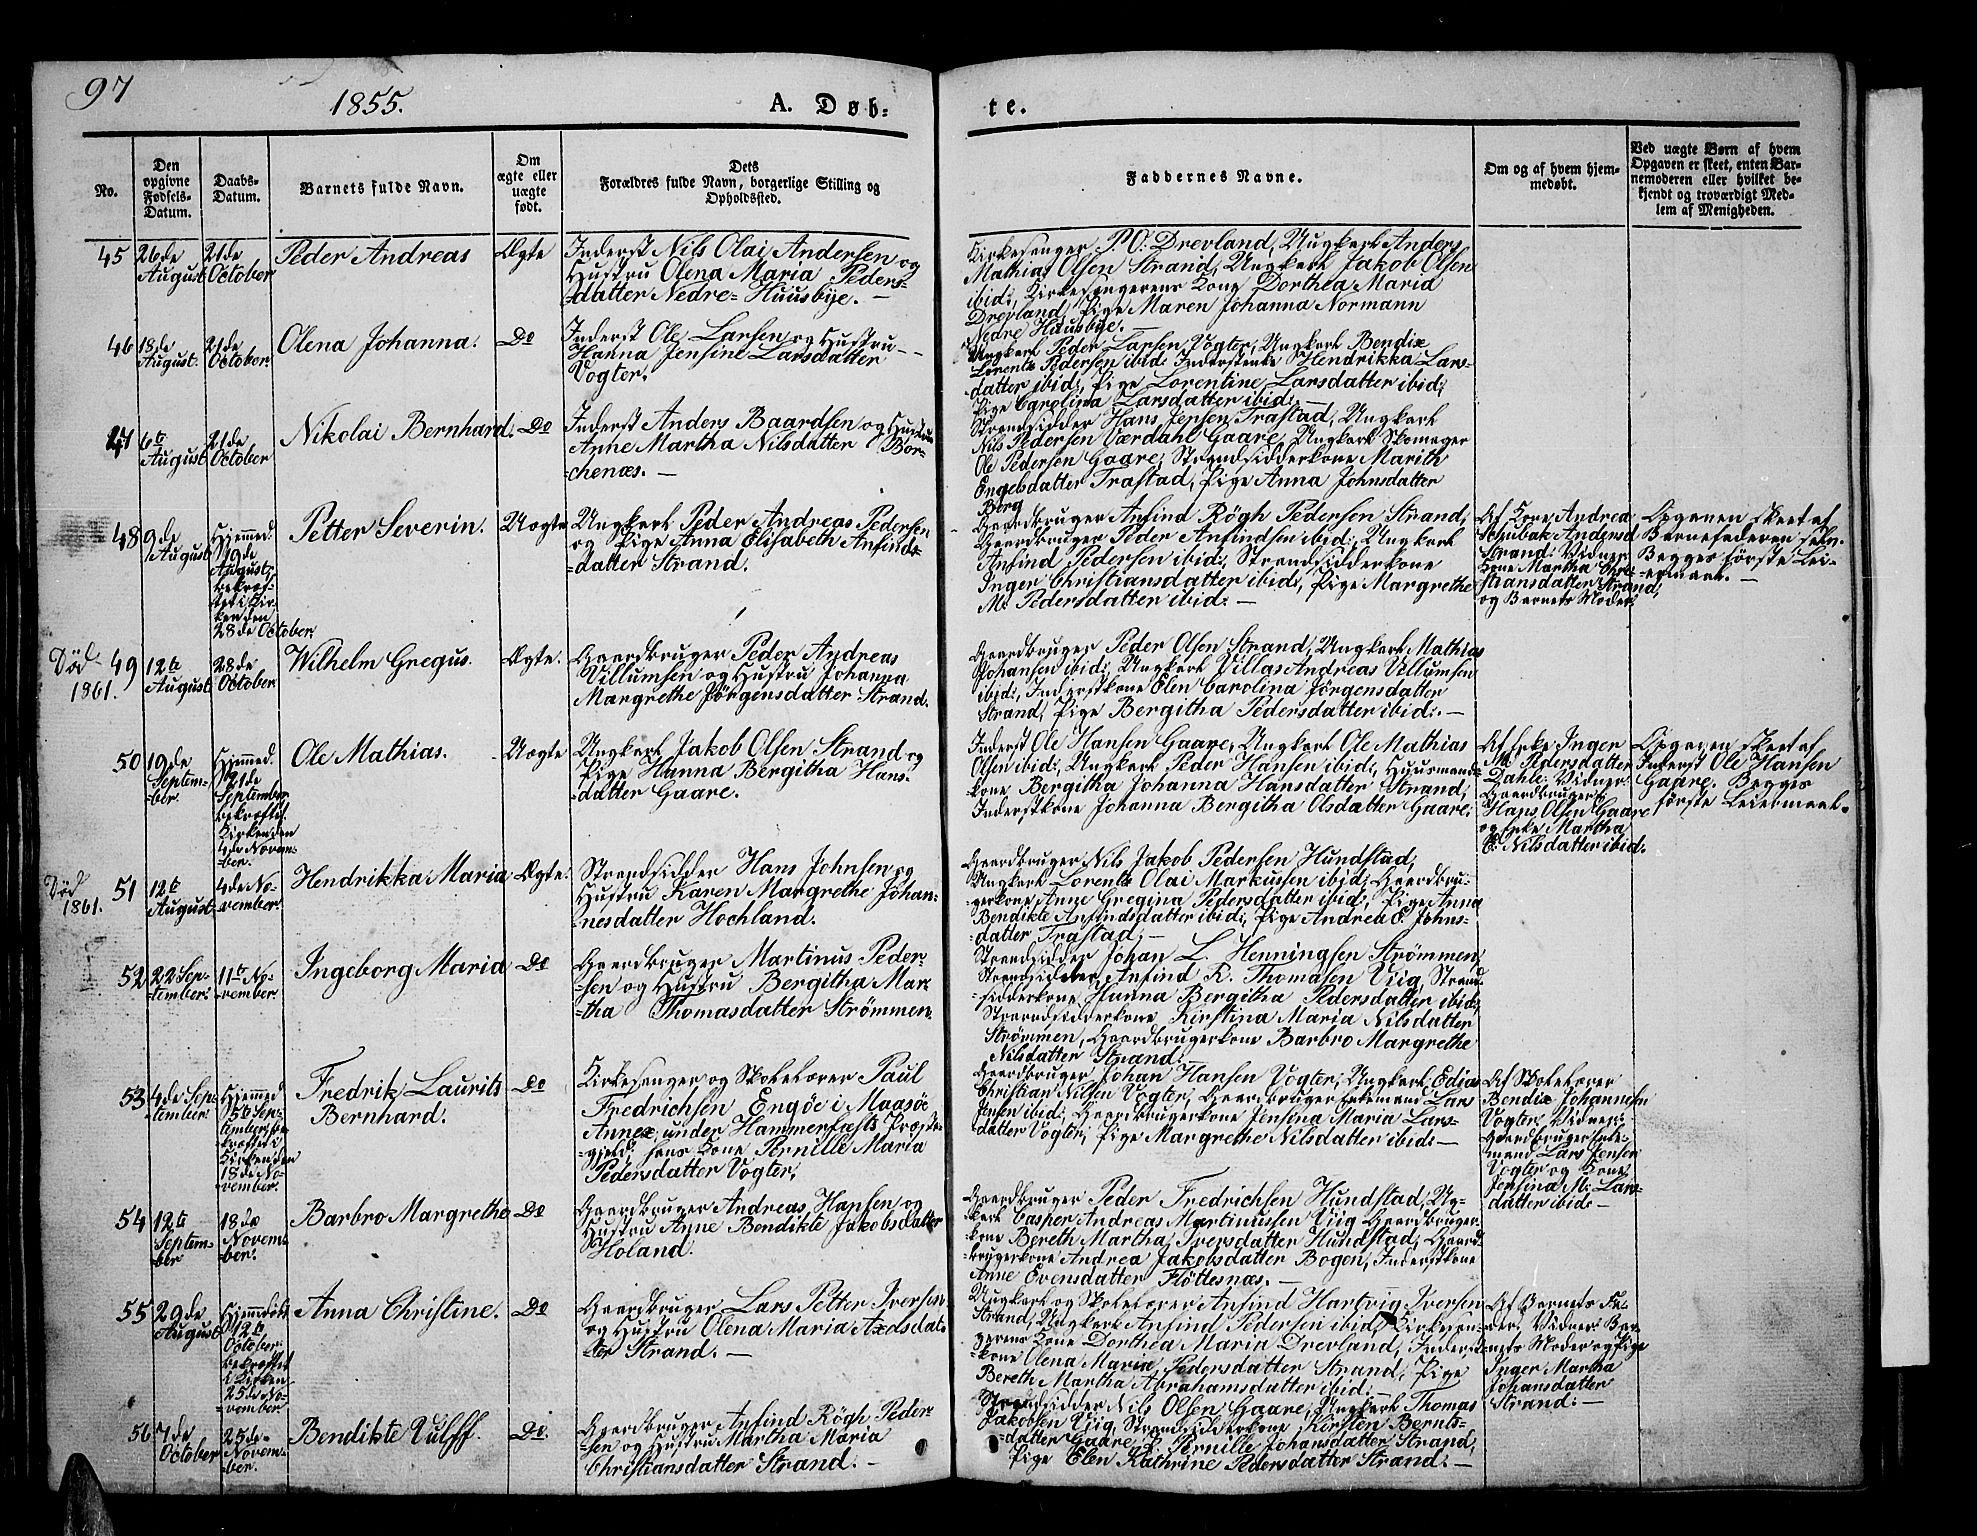 97
1855.
A. Døb-
te.
No.
Den
opgivne
Fødsels-
Datum.
Daabs-
Datum.
Barnets fulde Navn.
Om
ægte eller
uægte
født.
Dets
Forældres fulde Navn, borgerlige Stilling og
Opholdssted.
Faddernes Navne.
Om og af hvem hjem-
medøbt.
Ved uægte Børn af hvem
Opgaven er skeet, enten Bar-
nemoderen eller hvilket be-
kjendt og troværdigt Med-
lem af Menigheden.
45
26de
August
21de
October
Peder Andreas
Ægte
Inderst Nils Olai Andersen og
Hustru Olena Maria Peders-
datter Nedre-Huusbye. —
Kirkesanger P. O. Drevland, Ungkarl Anders
Mathias Olsen Strand, Ungkarl Jakob Olsen
ibid:, Kirkesangerens Kone Dorthea Maria
Drevland, Pige Maren Johanna Normann
Nedre Huusbye. —
46
18de
August.
21de
October.
Olena Johanna.
Do
Inderst Ole Larsen og Hustru
Hanna Jensine Larsdatter
Vogter.
Ungkarl Peder Larsen Vogter, Ungkarl Bendix
Lorents Pedersen ibid: Inderstenke Hendrikka Lars-
datter ibid:, Pige Lorentine Larsdatter ibid:,
Pige Carolina Larsdatter ibid: —
47
6te
August
21de
October
Nikolai Bernhard.
Do
Inderst Anders Baardsen og Hustru
Anne Martha Nilsdatter Bor-
chenæs. —
Strandsidder Hans Jensen Trastad, Ungkarl
Nils Pedersen Værdahl Gaare, Ungkarl Skomager
Ole Pedersen Gaare, Strandsidderkone Marith
Engelsdatter Trastad, Pige Anna Johnsdatter
Berg
48
9de
August
Hjemmed.
19de
August,
bekræf-
tet i Kir-
ken den
28de October.
Petter Severin.
Uægte
Ungkarl Peder Andreas Pedersen
og Pige Anna Elisabeth Anfinds-
datter Strand.
Gaardbruger Anfind Rögh Pedersen Strand,
Gaardbruger Peder Anfindsen ibid:, Ungkarl
Anfind Pedersen ibid:, Strandsidderkone
Inger Christiansdatter ibid:, Pige Margrethe
M. Pedersdatter ibid: —
Af Kone Andrea
Schubak Andersd
Strand: Vidner:
Kone Martha Chri-
stiansdatter Strand,
og Barnets Moder.
Opgaven skeet af
Barnefaderen selv.
Begges første Lei-
ermaal. —
Död
1861.
49
12te
August
28de
October
Wilhelm Gregus.
Ægte.
Gaardbruger Peder Andreas
Villumsen og Hustru Johanna
Margrethe Jörgensdatter Strand.
Gaardbruger Peder Olsen Strand, Ungkarl Mathias
Johansen ibid:, Ungkarl Villas Andreas Villumsen
ibid:, Inderstkone Elen Carolina Jörgensdatter
Strand, Pige Bergitha Pedersdatter ibid:. —
50
19de
Septem-
ber.
Hjemmed.
21de
September
bekræftet i
Kirken den
4de Novem-
ber.
Ole Mathias.
Uægte
Ungkarl Jakob Olsen Strand og
Pige Hanna Bergitha Hans-
datter Gaare.
Inderst Ole Hansen Gaare, Ungkarl Ole Mathias
Olsen ibid:, Ungkarl Peder Hansen ibid:, Huusmands-
kone Bergitha Johanna Hansdatter Strand,
Inderstkone Johanna Bergitha Olsdatter Gaare.
Af Enke Inger
M. Pedersdatter
Dahle: Vidner:
Gaardbruger
Hans Olsen Gaare
og Enke Martha
E. Nilsdatter ibid:
Opgaven skeet af
Inderst Ole Hansen
Gaare. Begges
første Leiermaal.
Död
1861.
51
12te
August
4de No-
vember.
Hendrikka Maria
Ægte.
Strandsidder Hans Johnsen og
Hustru Karen Margrethe Johan-
nesdatter Hochland.
Gaardbruger Nils Jakob Pedersen Hundstad,
Ungkarl Lorents Olai Markussen ibid:, Gaardbru-
gerkone Anne Gregina Pedersdatter ibid:, Pige Anna
Bendikte Anfindsdatter ibid:, Pige Andrea E. Johns-
datter Trastad. —
52
22 Sep-
tember.
11te No-
vember
Ingeborg Maria
Do
Gaardbruger Martinus Peder-
sen og Hustru Bergitha Mar-
tha Thomasdatter Strömmen.
Strandsidder Johan L. Henningsen Strömmen,
Strandsidder Anfind K. Thomasen Viig, Strand-
sidderkone Hanna Bergitha Pedersdatter ibid:,
Strandsidderkone Kirstina Maria Nilsdatter
Strömmen, Gaardbrugerkone Barbro Margrethe
Nilsdatter Strand. —
53
4de Sep-
tember.
Hjemmed
5te Sep-
tember, be-
kræftet i
Kirken den
18de No-
vember.
Fredrik Laurits
Bernhard.
Do
Kirkesanger og Skolelærer Paul
Fredrichsen Engöe i Maasöe
Annex, under Hammerfests Præste-
gjeld; hans Kone Pernille Maria
Pedersdatter Vogter.
Gaardbruger Johan Hansen Vogter, Ungkarl Edias
Christian Nilsen Vogter, Gaardbruger Enkemand Lars
Jensen ibid:, Gaardbrugerkone Jensina Maria Lars-
datter Vogter, Pige Margrethe Nilsdatter ibid: —
Af Skolelærer
Bendix Johannesen
Vogter. Vidner:
Gaardbruger Enke-
mand Lars Jensen
Vogter og Kone
Jensina M. Lars-
datter ibid: —
54
12te
Septem-
ber
18de
Novem-
ber.
Barbro Margrethe
Do
Gaardbruger Andreas Hansen og
Hustru Anne Bendikte Jakobsdatter
Holand.
Gaardbruger Peder Fredrichsen Hundstad, Ung-
karl Casper Andreas Martinussen Viig Gaardbruger-
kone Bereth Martha Iversdatter Hundstad, Gaard-
brugerkone Andrea Jakobsdatter Bogen, Inderstkone
Anne Evensdatter Flöttesnæs. —
55
29de
August
Hjemmedöbt
12te
October.
bekræftet
i Kirken
25de No-
vember
Anna Christine.
Do
Gaardbruger Lars Petter Iversen
og Hustru Olena Maria Axelsdat-
ter Strand. —
Ungkarl og Skolelærer Anfind Hartvig Iversen
Strand, Ungkarl Anfind Pedersen ibid:, Kirkesan-
gerens Kone Dorthea Maria Drevland, Inderst-
kone Olena Maria Pedersdatter Strand, Pige
Bereth Martha Abrahamsdatter ibid: —
Af Barnets Fa-
der. Vidner: Bar-
nets Moder og Pige
Inger Martha
Johansdatter
Strand. —
56
7de
October
25de
Novem-
ber.
Bendikte Vulff.
Do.
Gaardbruger Anfind Rögh Peder-
sen og Hustru Martha Maria
Christiansdatter Strand. —
Strandsidder Nils Olsen Gaare, Ungkarl Thomas
Jakobsen Viig, Strandsidderkone Kirsten Bernts-
datter Gaare, P. Pernille Johansdatter Strand,
Pige Elen Kathrine Pedersdatter Strand. —